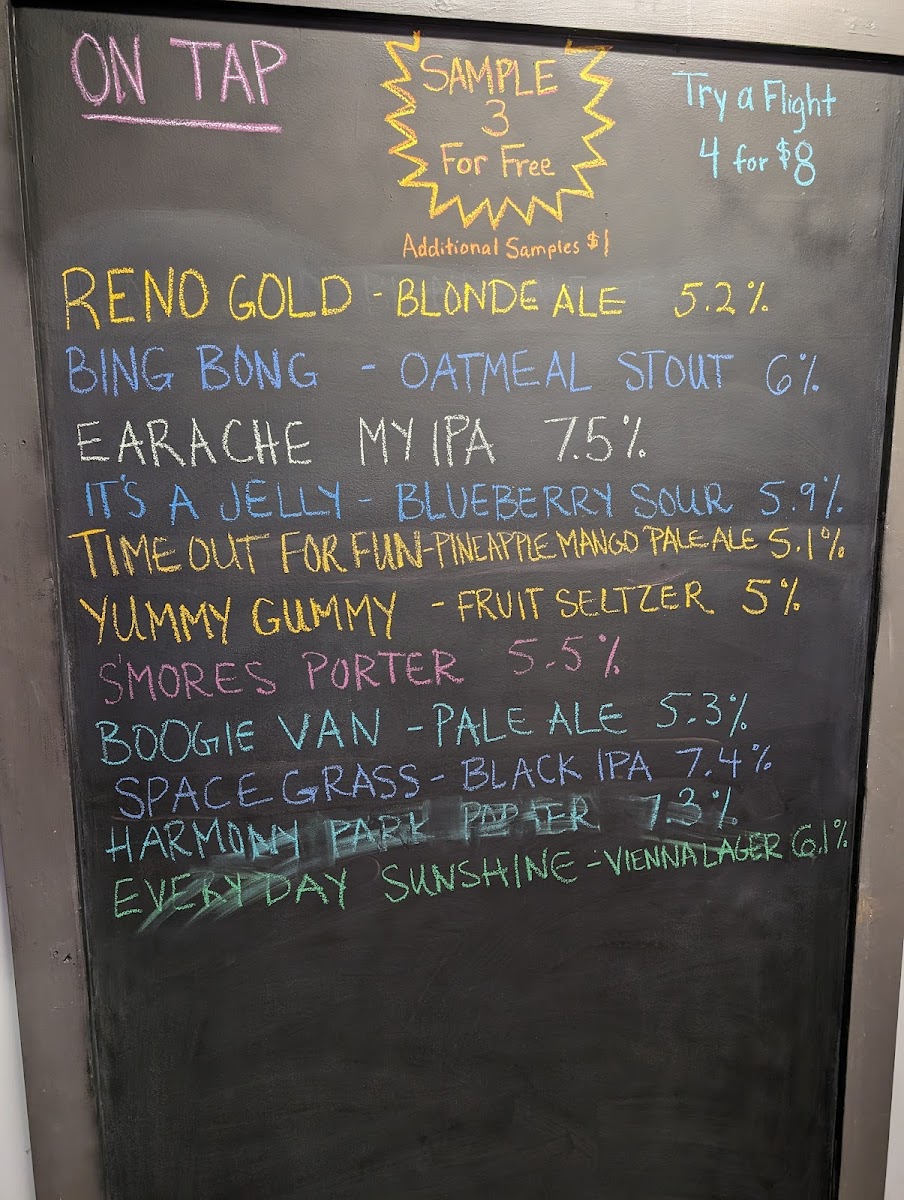 ON TAP
SAMPLE
3
For Free
Additional Samples $1
Try a Flight
4 for $8
RENO GOLD - BLONDE ALE 5.2%
BING BONG - OATMEAL STOUT 6%
EARACHE MY IPA 7.5%
IT'S A JELLY - BLUEBERRY SOUR 5.9%
TIME OUT FOR FUN - PINEAPPLE MANGO PALE ALE 5.1%
YUMMY GUMMY - FRUIT SELTZER 5%
S'MORES PORTER 5.5%
BOOGIE VAN - PALE ALE 5.3%
SPACE GRASS - BLACK IPA 7.4%
HARMONY PARK PORTER 7.3%
EVERY DAY SUNSHINE - VIENNA LAGER 6.1%